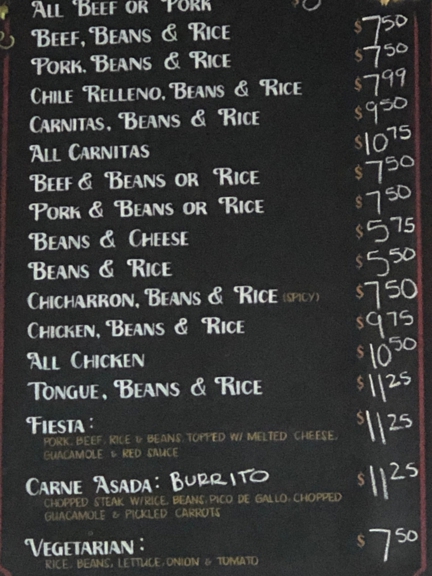 ALL BEEF OR PORK
BEEF, BEANS & RICE $7.50
PORK, BEANS & RICE $7.50
CHILE RELLENO, BEANS & RICE $7.99
CARNITAS, BEANS & RICE $9.50
ALL CARNITAS $10.75
BEEF & BEANS OR RICE $7.50
PORK & BEANS OR RICE $7.50
BEANS & CHEESE $5.75
BEANS & RICE $5.50
CHICHARRON, BEANS & RICE (SPICY) $7.50
CHICKEN, BEANS & RICE $9.75
ALL CHICKEN $10.50
TONGUE, BEANS & RICE $11.25
FIESTA: $11.25
PORK, BEEF, RICE & BEANS TOPPED W/ MELTED CHEESE,
GUACAMOLE & RED SAUCE
CARNE ASADA: BURRITO $11.25
CHOPPED STEAK W/RICE, BEANS, PICO DE GALLO, CHOPPED
GUACAMOLE & PICKLED CARROTS
VEGETARIAN: $7.50
RICE, BEANS, LETTUCE, ONION & TOMATO